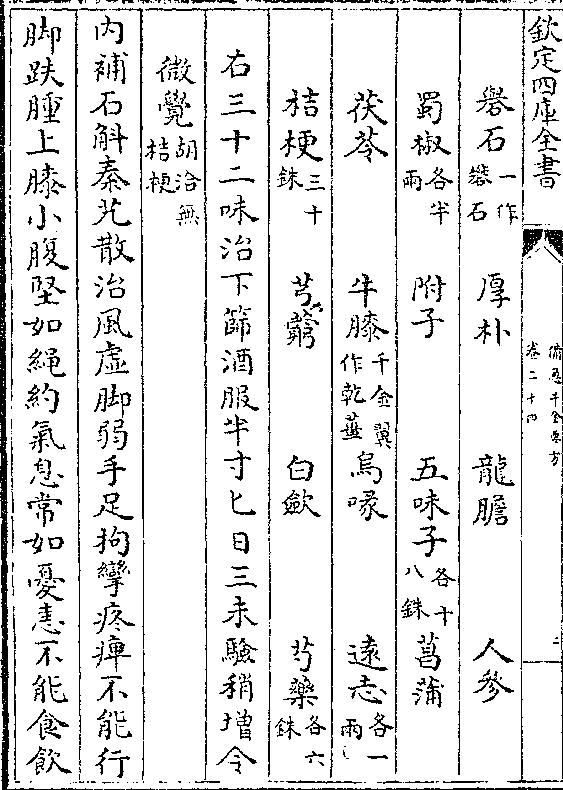 欽定四庫全書
備急千金要方
卷二十四
二
礜石一作礬石 厚朴 龍膽 人參
蜀椒各半兩 附子 五味子各十八銖 菖蒲
茯苓 牛膝千金翼作乾薑 烏喙 遠志各一兩
桔梗三十銖 芎藭 白蘞 芍藥各六銖
右三十二味治下篩酒服半寸匕日三未驗稍增令
微覺胡洽無桔梗
内補石斛秦艽散治風虛脚弱手足拘攣疼痺不能行
脚趺腫上膝小腹堅如繩約氣息常如憂恚不能食飲